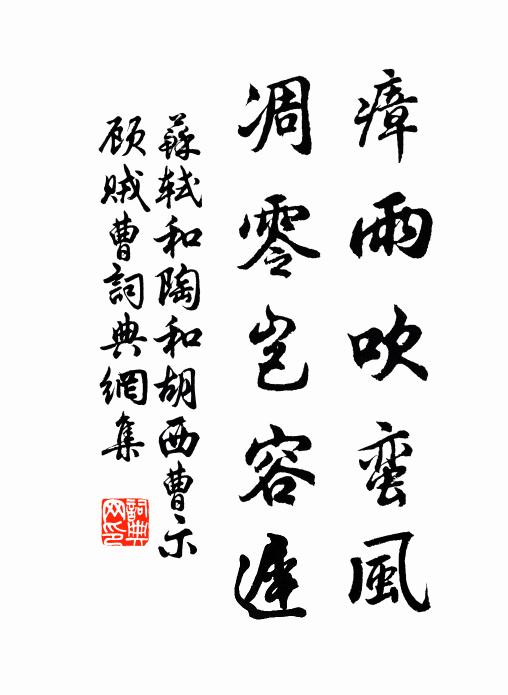 瘴雨吹蛮風
凋零岂容遲
蘇轼和陶和胡西曹示
顾贼曹詞典網集
詞典
网印